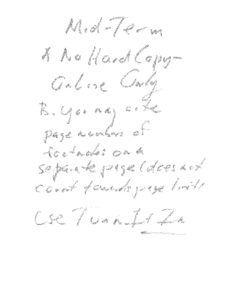 Mid-Term
A No Hard Copy-
Online Only
B. You may cite
page numbers of
footnotes on a
separate page (does not
count towards page limit)
Use Turn It In